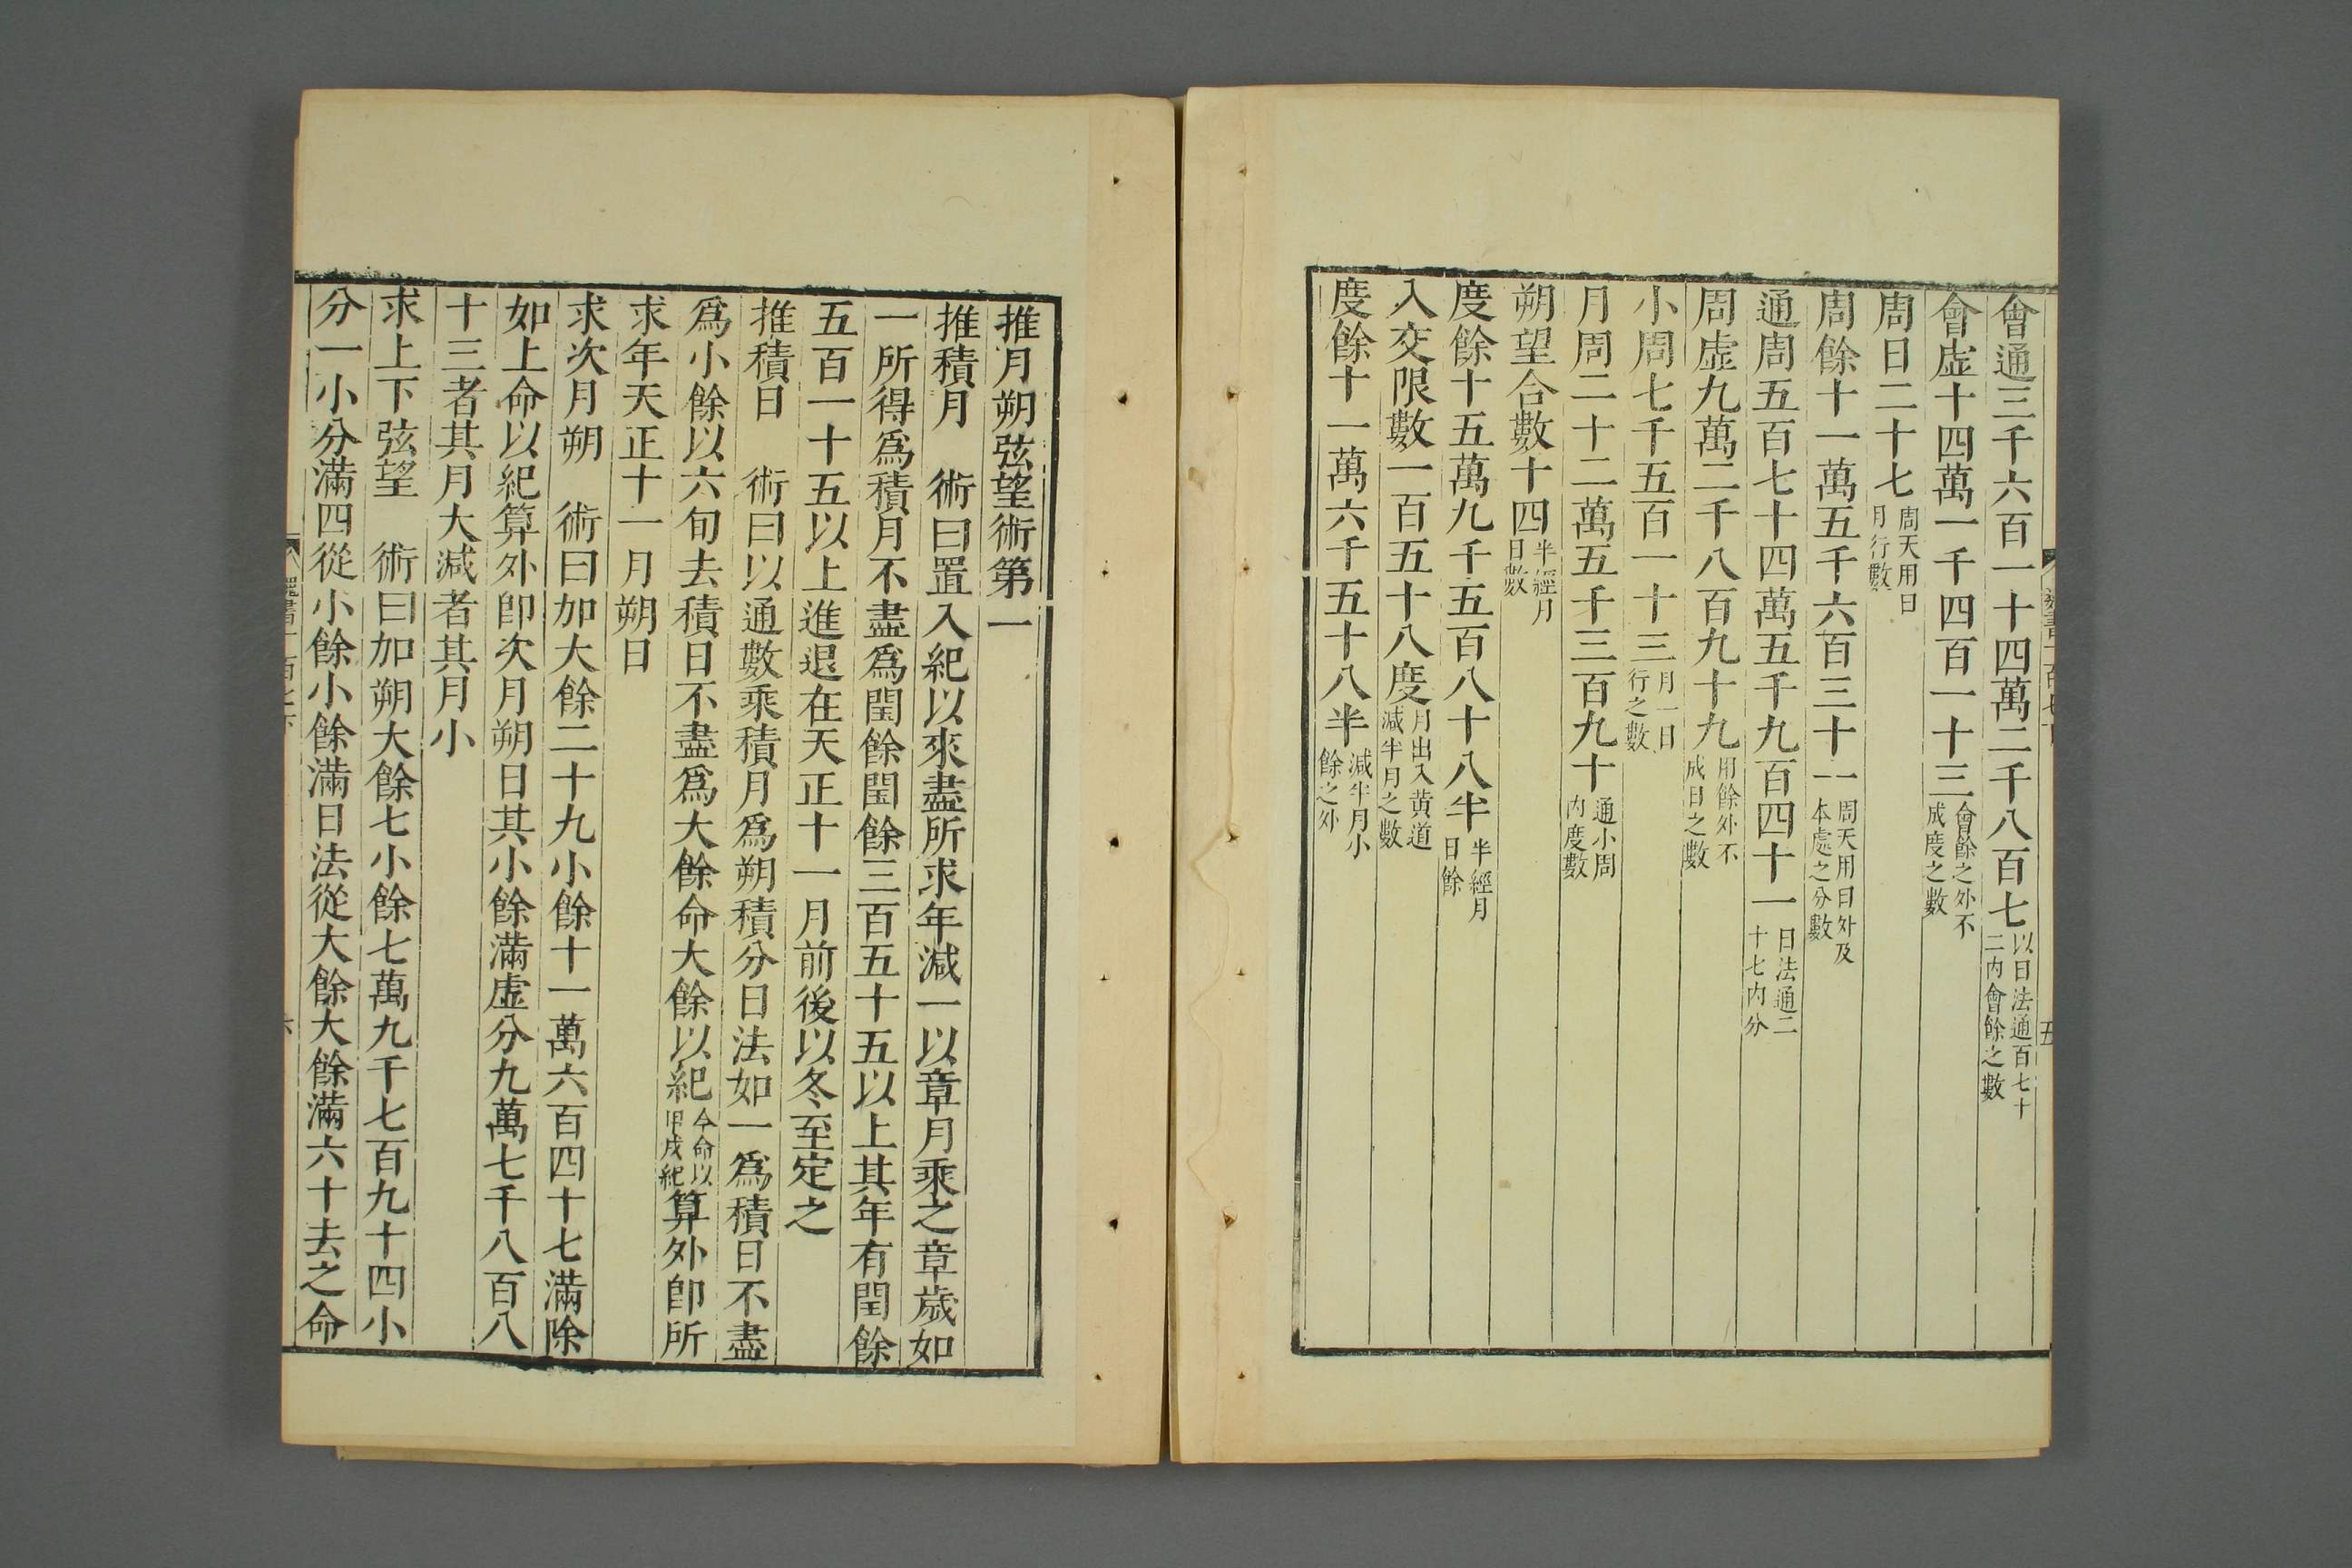 會通三千六百一十四萬二千八百七以日法通百七十二內會餘之數
會虛十四萬一千四百一十三會餘之外不成度之數
周日二十七周天用日月行數
周餘十一萬五千六百三十一周天用日外及本處之分數
通周五百七十四萬五千九百四十一日法通二十七內分
周虛九萬二千八百九十九用餘外不成日之數
小周七千五百一十三月一日行之數
月周二十二萬五千三百九十通小周內度數
朔望合數十四半經月日數
度餘十五萬九千五百八十八半半經月日餘
入交限數一百五十八度月出入黄道減半月之數
度餘十一萬六千五十八半減半月小餘之外
推月朔弦望術第一
推積月 術曰置入紀以來盡所求年減一以章月乘之章歲如
一所得爲積月不盡爲閏餘閏餘三百五十五以上其年有閏餘
五百一十五以上進退在天正十一月前後以冬至定之
推積日 術曰以通數乘積月爲朔積分日法如一爲積日不盡
爲小餘以六旬去積日不盡爲大餘命大餘以紀今命以甲戌紀算外卽所
求年天正十一月朔日
求次月朔 術曰加大餘二十九小餘十一萬六百四十七滿除
如上命以紀算外卽次月朔日其小餘滿虛分九萬七千八百八
十三者其月大減者其月小
求上下弦望 術曰加朔大餘七小餘七萬九千七百九十四小
分一小分滿四從小餘小餘滿日法從大餘大餘滿六十去之命